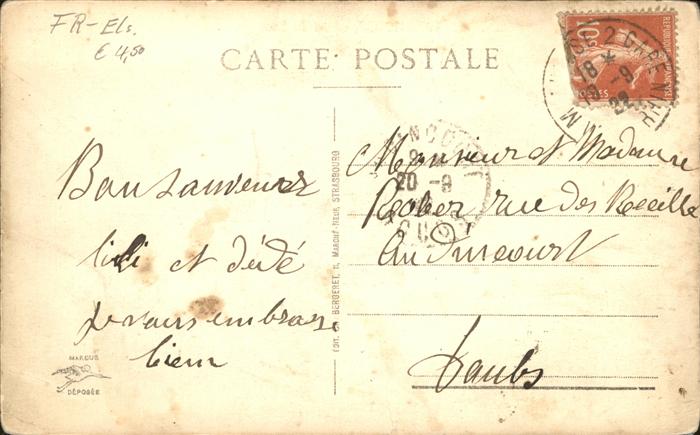 FR-Els.
€ 4,50
CARTE POSTALE
10c
RÉPUBLIQUE FRANÇAISE
POSTES
2 GARE
18 *
19 -9
22
20 -9
Bon souvenir
lili et dédé
je vous embrasse
bien
MARQUE
DÉPOSÉE
EDIT. BERGERET, MARCHÉ-NEUF, STRASBOURG
Monsieur et Madame
rue des
Audincourt
Doubs